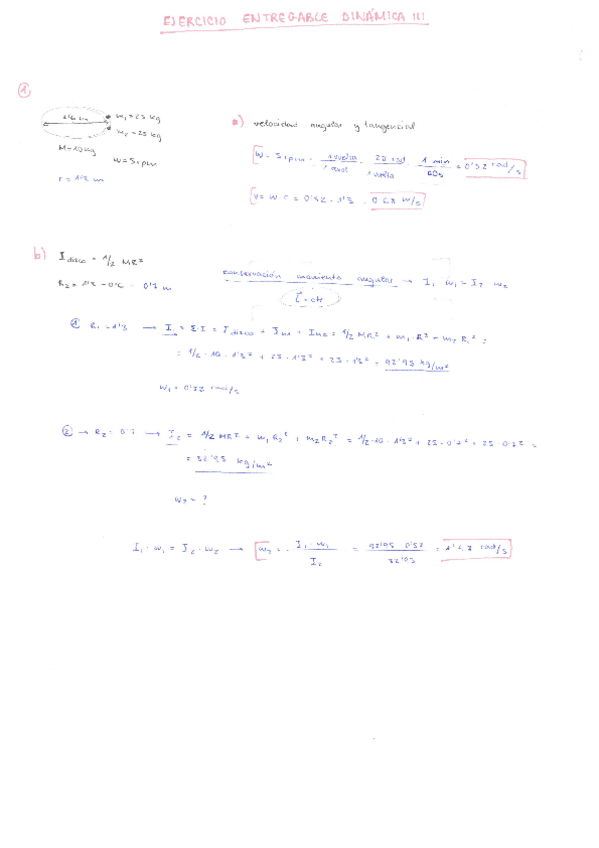 EJERCICIO ENTREGABLE DINÁMICA III
①
2'6 m m₁ = 25 kg
m₂ = 25 kg
M = 10 kg
ω = 5 rpm
r = 1'3 m
a) velocidad angular y tangencial
ω = 5 rpm · 1 vuelta / 1 · 2π rad / 1 vuelta · 1 min / 60s = 0'52 rad/s
v = ω · r = 0'52 · 1'3 = 0'68 m/s
b) I disco = 1/2 MR²
R₂ = = 0'7 m
conservación momento angular → I₁ ω₁ = I₂ ω₂
L = cte
① R₁ = 1'3 → I₁ = Σ I = I disco + I m₁ + I m₂ = 1/2 MR² + m₁ · R² + m₂ R₁² =
= 1/2 · 10 · 1'3² + 25 · 1'3² + 25 · 1'3² = 92'95 kg/m²
ω₁ = 0'52 rad/s
② → R₂ = 0'7 → I₂ = 1/2 MR² + m₁ R₂² + m₂ R₂² = 1/2 · 10 · 1'3² + 25 · 0'7² + 25 · 0'7² =
= 32'95 kg/m²
ω₂ = ?
I₁ · ω₁ = I₂ · ω₂ → ω₂ = I₁ · ω₁ / I₂ = 92'95 · 0'52 / 32'95 = 1'47 rad/s